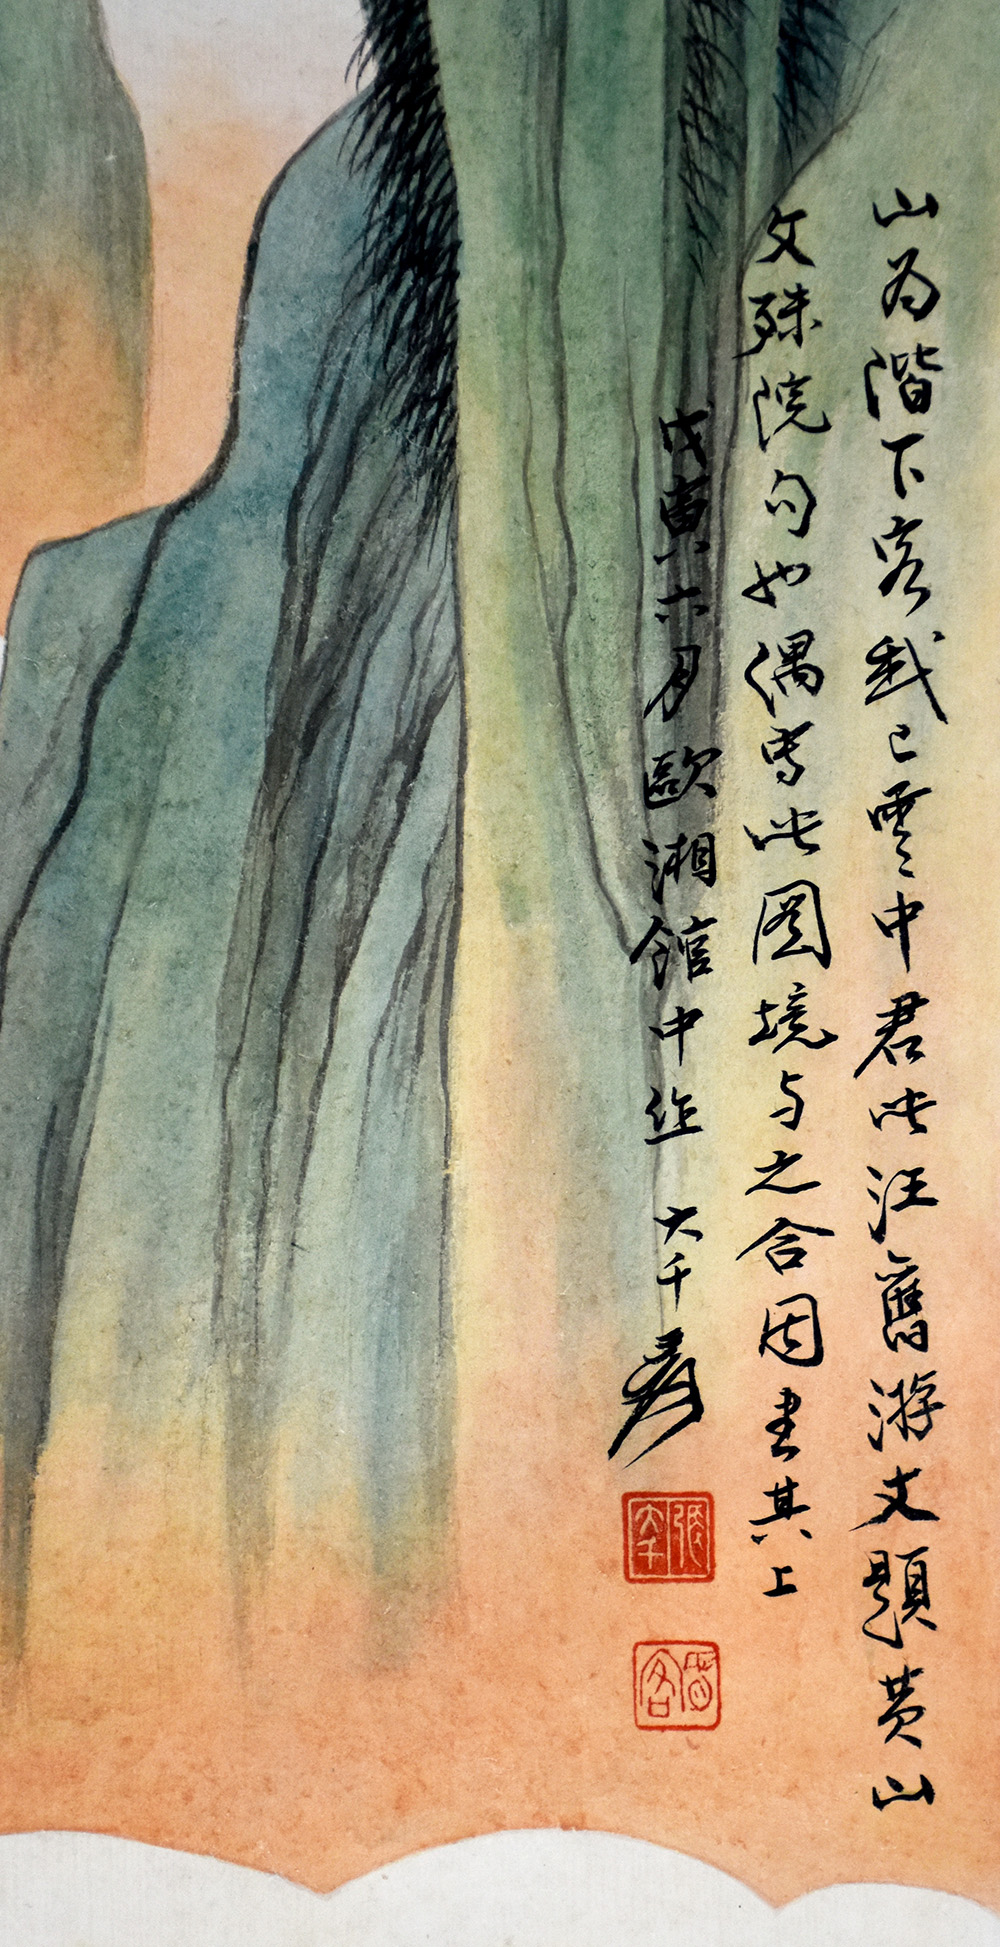 山为階下客我已雲中君此汪舊游丈題黄山
文殊院句也偶寫此圖境与之合因書其上
戊寅六月歐湘館中作 大千爰
張大千